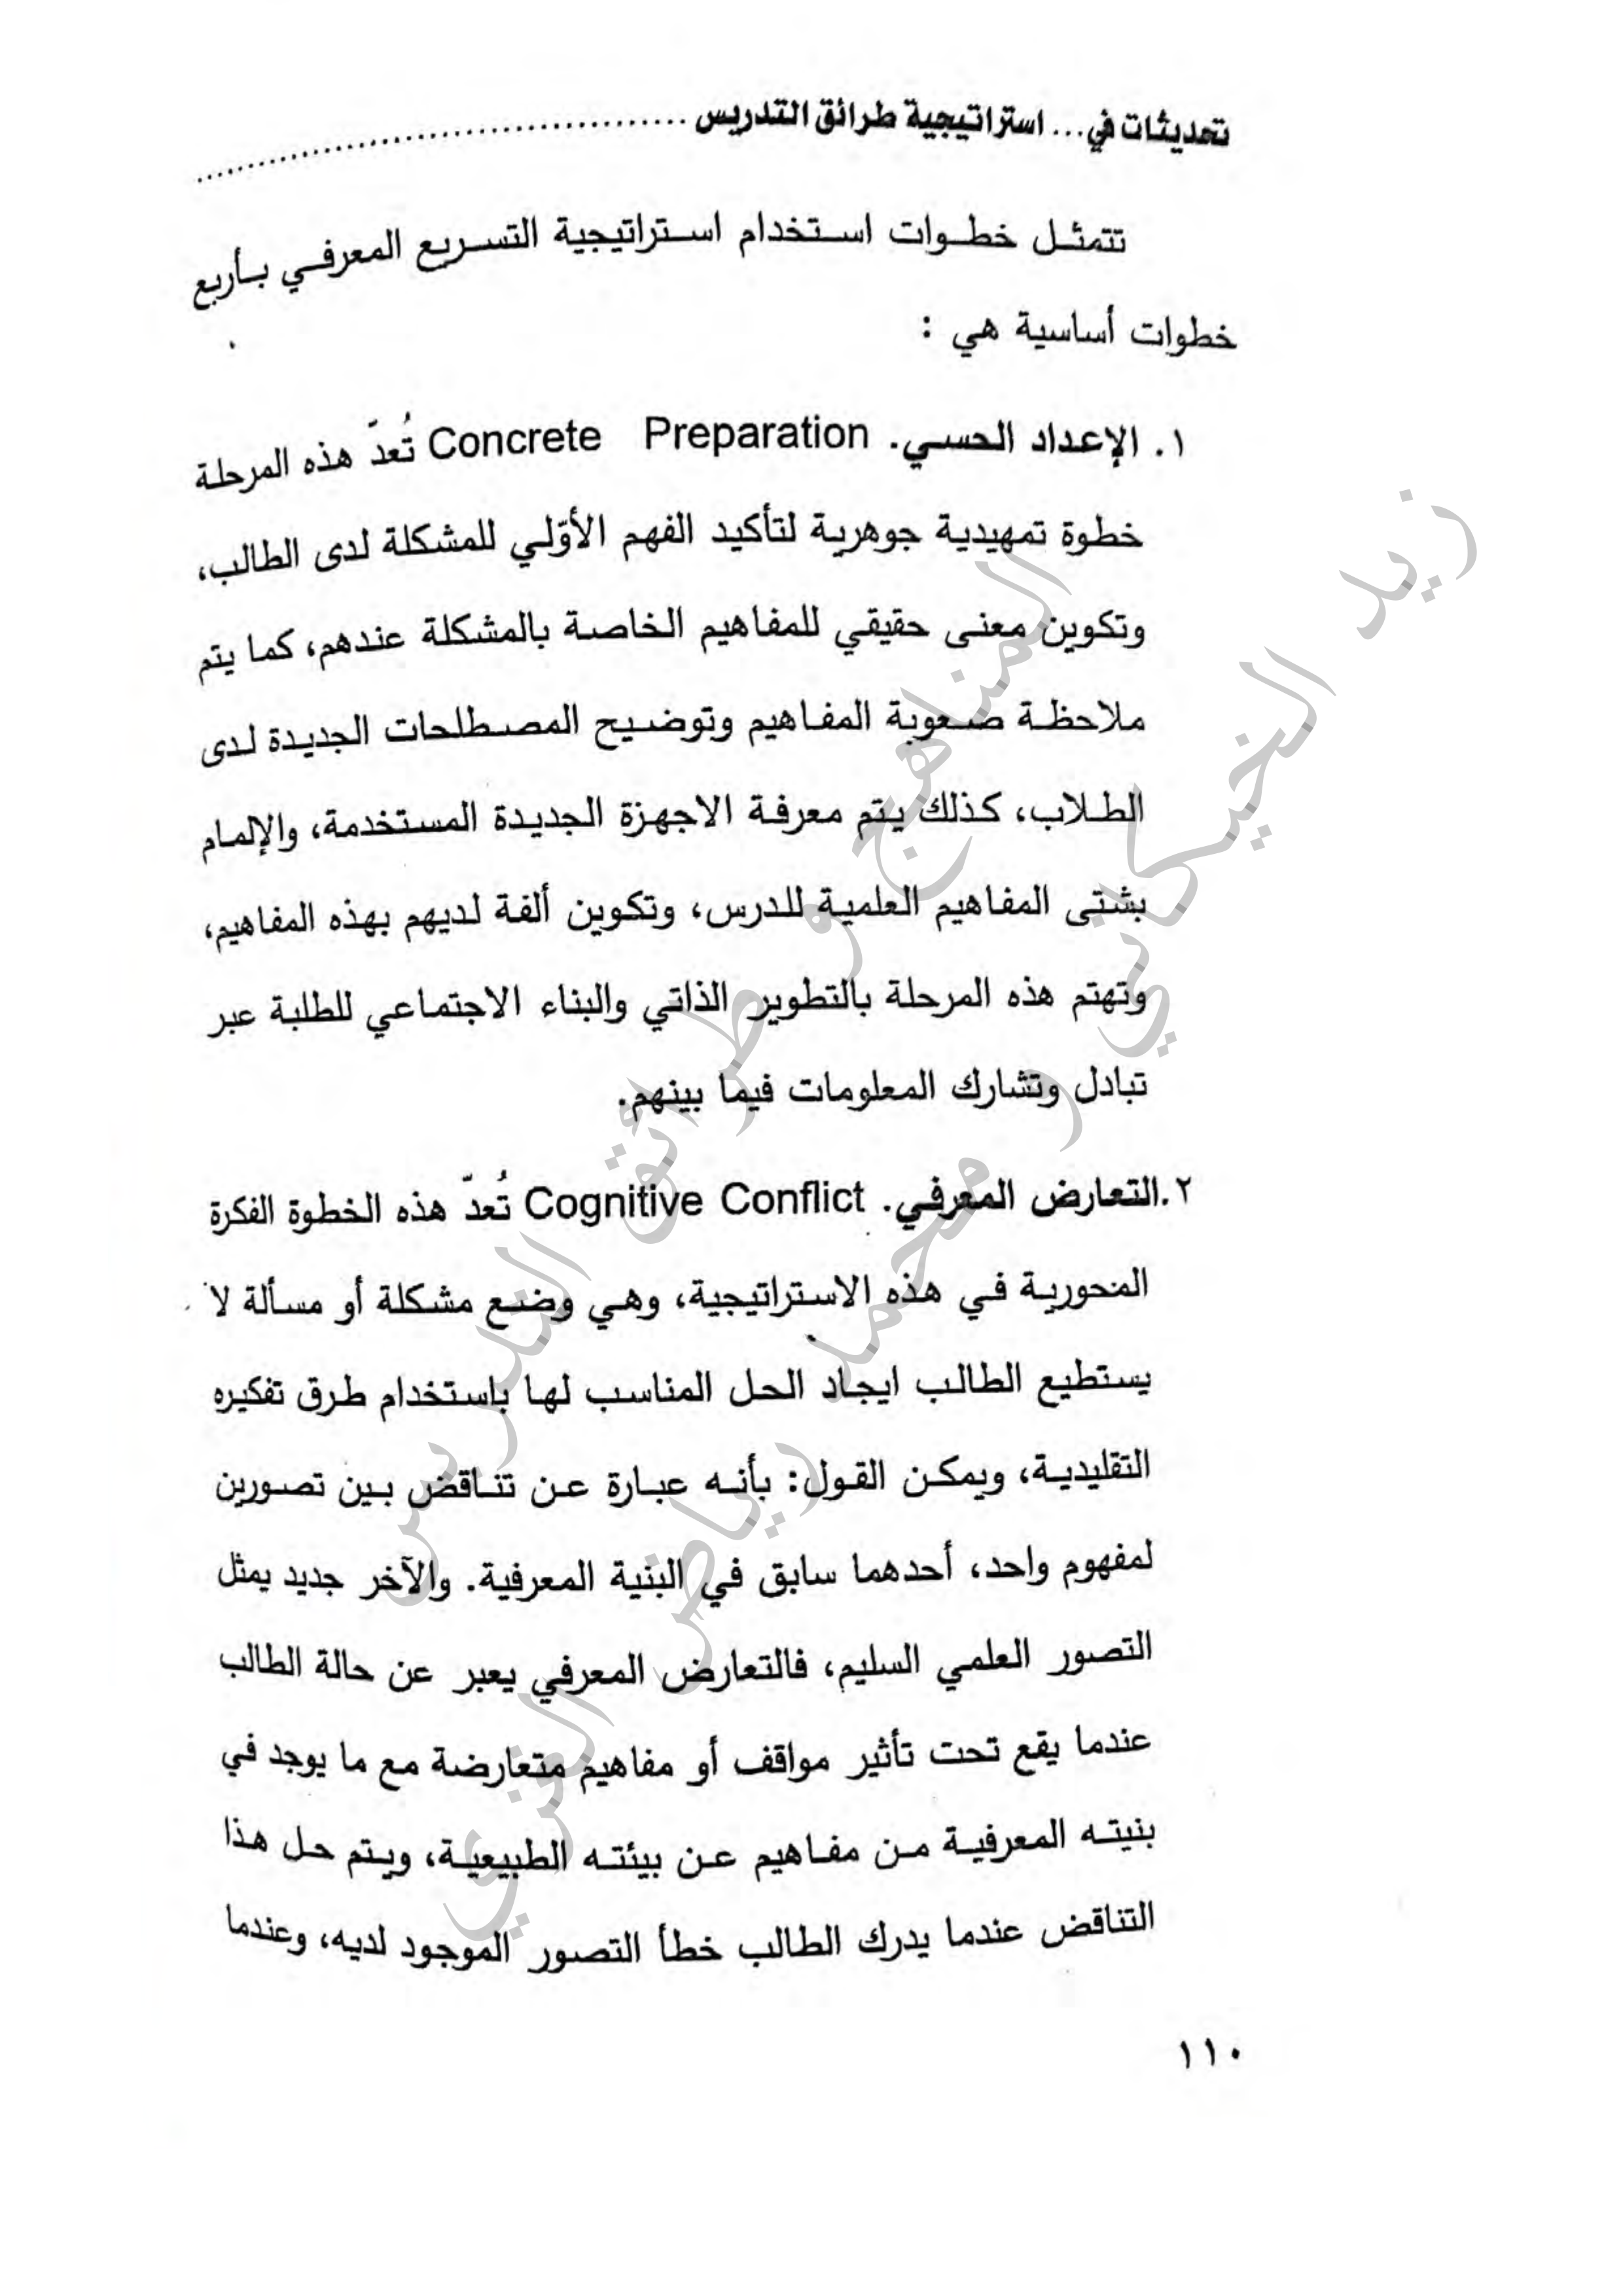 تحديثات في... استراتيجية طرائق التدريس
تتمثل خطوات استخدام استراتيجية التسريع المعرفي بأربع
خطوات أساسية هي :
١. الإعداد الحسي. Concrete Preparation تُعدّ هذه المرحلة
خطوة تمهيدية جوهرية لتأكيد الفهم الأوّلي للمشكلة لدى الطالب،
وتكوين معنى حقيقي للمفاهيم الخاصة بالمشكلة عندهم، كما يتم
ملاحظة صعوبة المفاهيم وتوضيح المصطلحات الجديدة لدى
الطلاب، كذلك يتم معرفة الاجهزة الجديدة المستخدمة، والإلمام
بشتى المفاهيم العلمية للدرس، وتكوين ألفة لديهم بهذه المفاهيم،
وتهتم هذه المرحلة بالتطوير الذاتي والبناء الاجتماعي للطلبة عبر
تبادل وتشارك المعلومات فيما بينهم.
٢.التعارض المعرفي. Cognitive Conflict تُعدّ هذه الخطوة الفكرة
المحورية في هذه الاستراتيجية، وهي وضع مشكلة أو مسألة لا
يستطيع الطالب ايجاد الحل المناسب لها باستخدام طرق تفكيره
التقليدية، ويمكن القول: بأنه عبارة عن تناقض بين تصورين
لمفهوم واحد، أحدهما سابق في البنية المعرفية. والآخر جديد يمثل
التصور العلمي السليم، فالتعارض المعرفي يعبر عن حالة الطالب
عندما يقع تحت تأثير مواقف أو مفاهيم متعارضة مع ما يوجد في
بنيته المعرفية من مفاهيم عن بيئته الطبيعية، ويتم حل هذا
التناقض عندما يدرك الطالب خطأ التصور الموجود لديه، وعندما
١١٠
المناهج و طرائق التدريس
زيد الخيكاني و محمد رياض الغزي